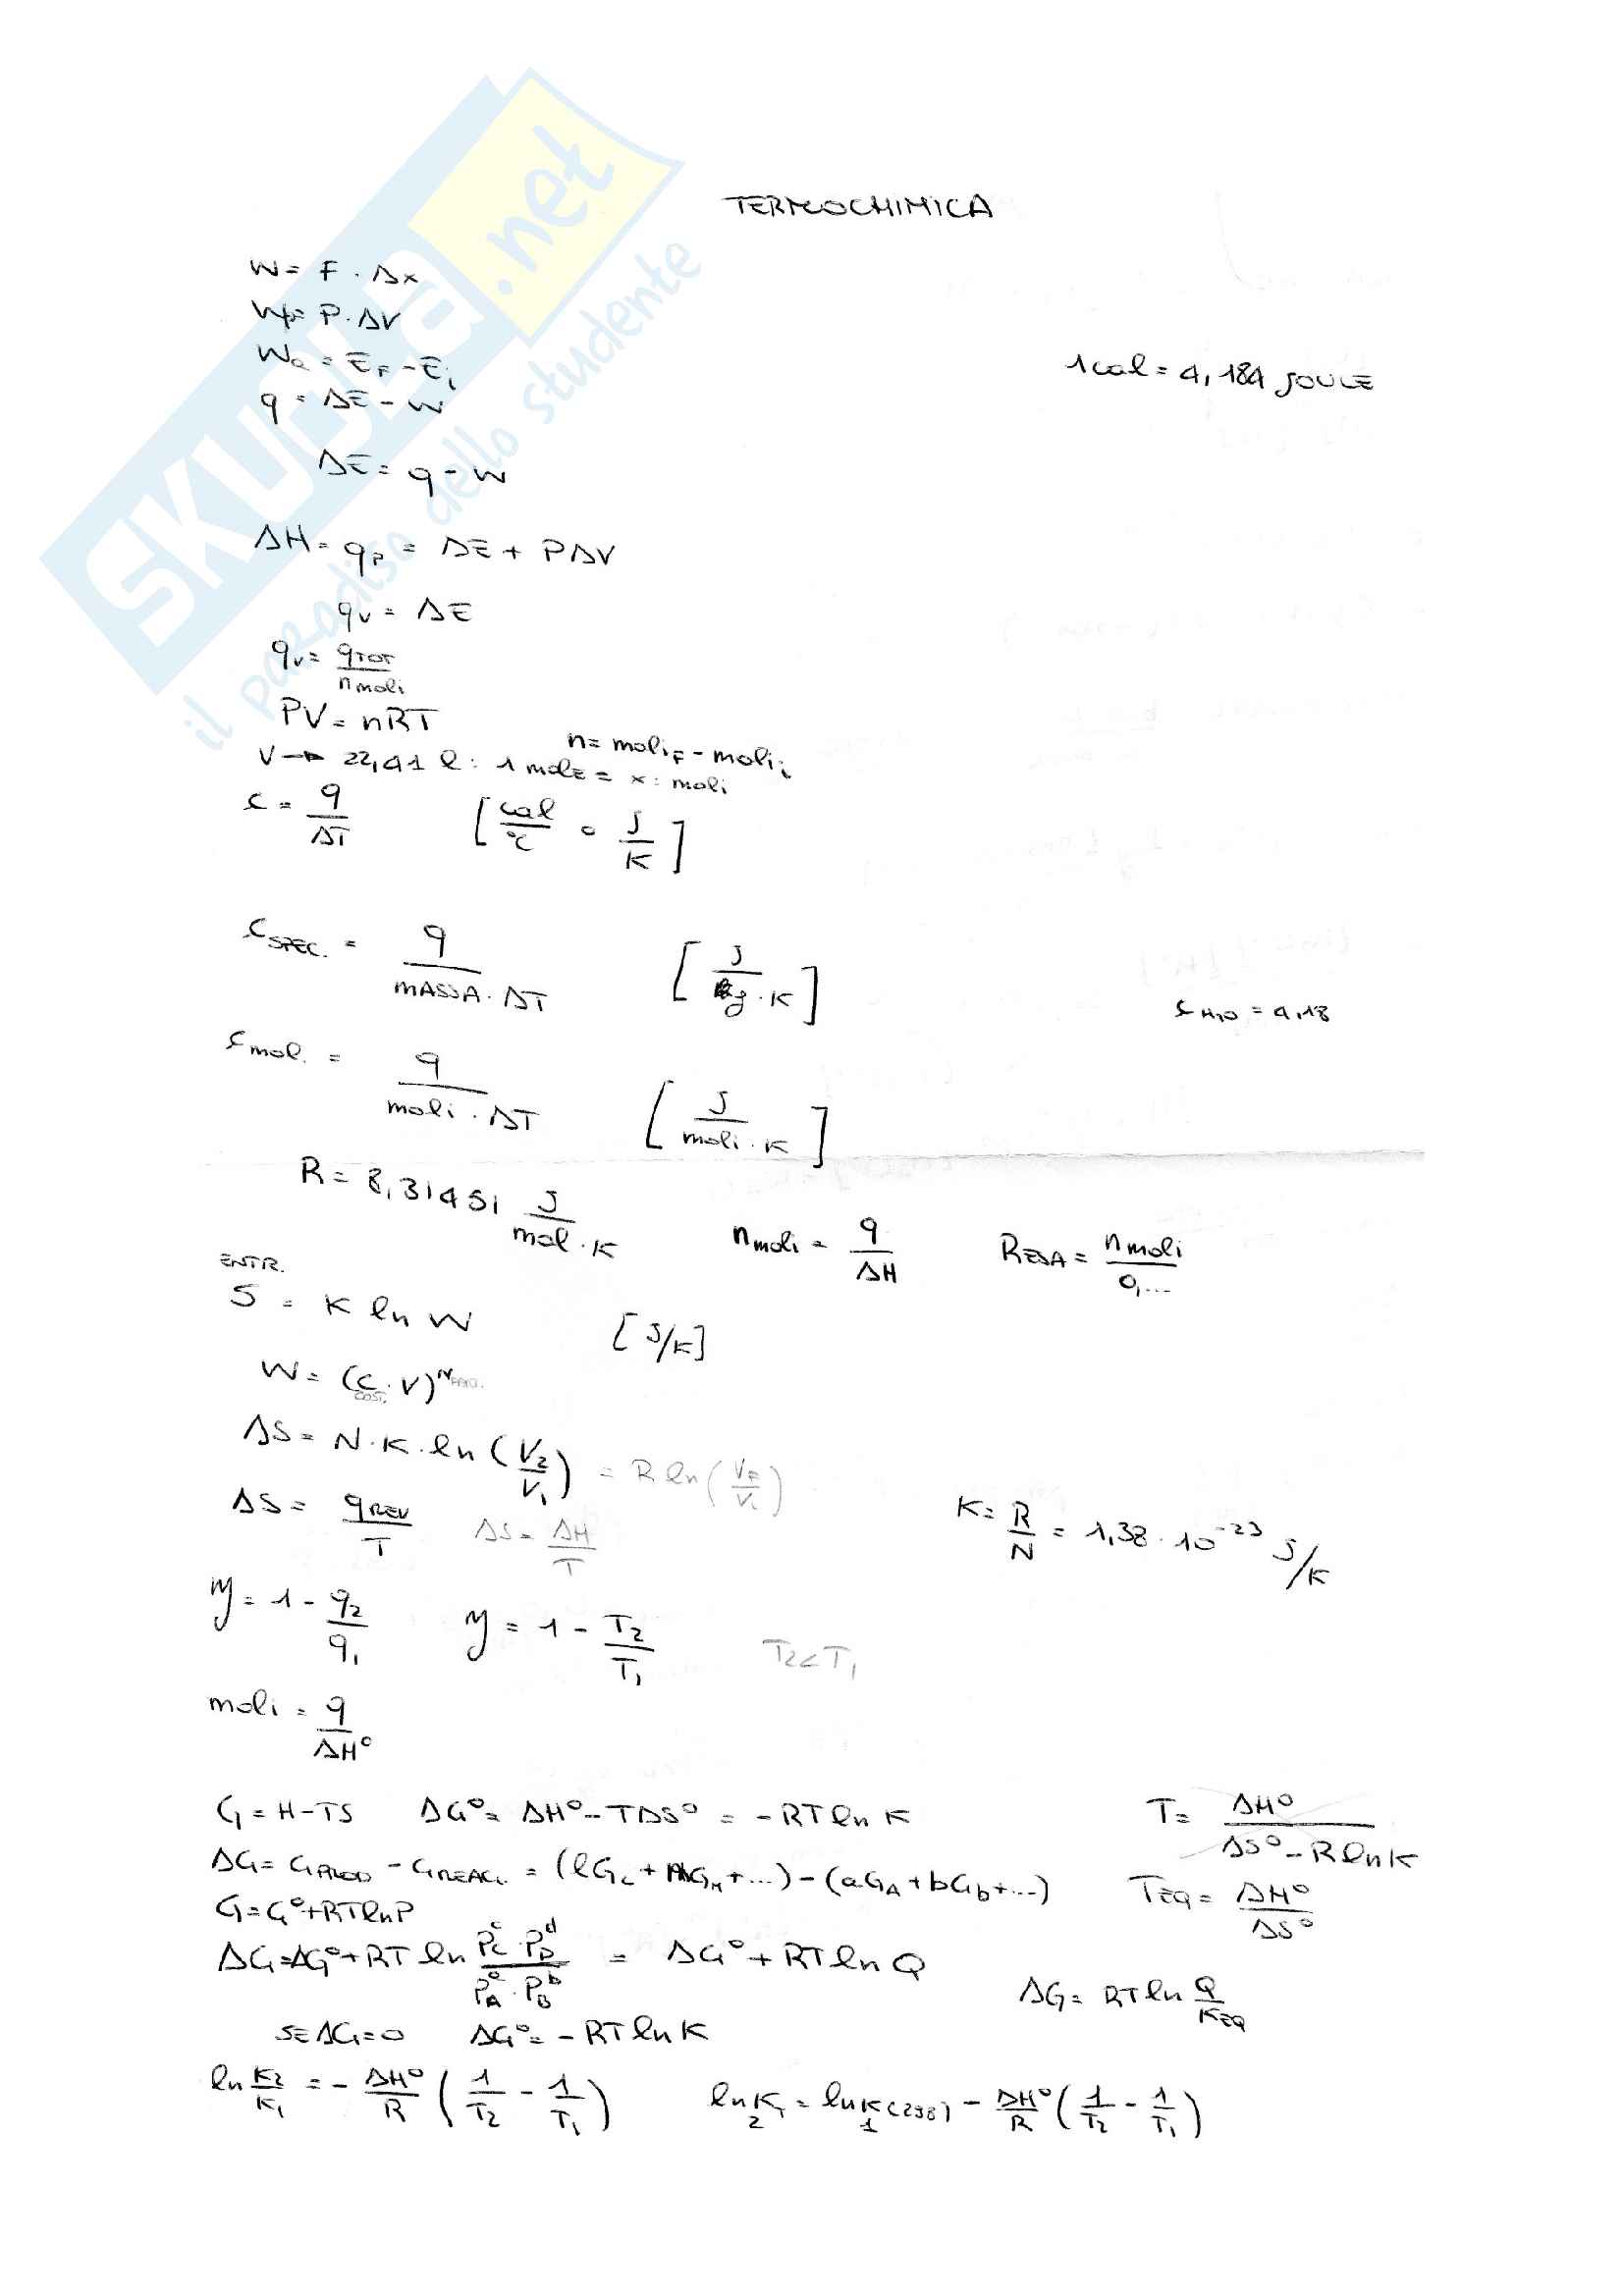 SKUOLA.net
il paradiso dello studente
TERMOCHIMICA
W = F · Δx
Wp = P · ΔV
Wa = E_F - E_i
1 cal = 4,184 JOULE
q = ΔE - W
ΔE = q - W
ΔH = q_P = ΔE + PΔV
q_V = ΔE
q_V = q_TOT / n moli
PV = nRT
n = moli_F - moli_i
V → 22,41 l : 1 mole = x : moli
c = q / ΔT [cal/°C o J/K]
c_SPEC. = q / (MASSA · ΔT) [J / (g · K)]
c_H2O = 4,18
c_mol. = q / (moli · ΔT) [J / (moli · K)]
R = 8,31451 J / (mol · K)
n moli = q / ΔH RESA = n moli / 0,...
ENTR.
S = K ln W [J/K]
W = (C · V)^N
COST.
ΔS = N · K · ln (V2 / V1) = R ln (V_F / V_i)
ΔS = q_REV / T ΔS = ΔH / T
K = R / N = 1,38 · 10^-23 J/K
η = 1 - q2 / q1 η = 1 - T2 / T1 T2 < T1
moli = q / ΔH°
G = H - TS ΔG° = ΔH° - TΔS° = -RT ln K T = ΔH° / (ΔS° - R ln K)
ΔG = G_PROD - G_REAG. = (lG_L + mG_M + ...) - (aG_A + bG_b + ...) T_EQ = ΔH° / ΔS°
G = G° + RT ln P
ΔG = ΔG° + RT ln (P_C^c · P_D^d) / (P_A^a · P_B^b) = ΔG° + RT ln Q
ΔG = RT ln Q / K_EQ
SE ΔG = 0 ΔG° = -RT ln K
ln K2 / K1 = - ΔH° / R (1/T2 - 1/T1) ln K_T = ln K (298) - ΔH° / R (1/T2 - 1/T1)
2 1